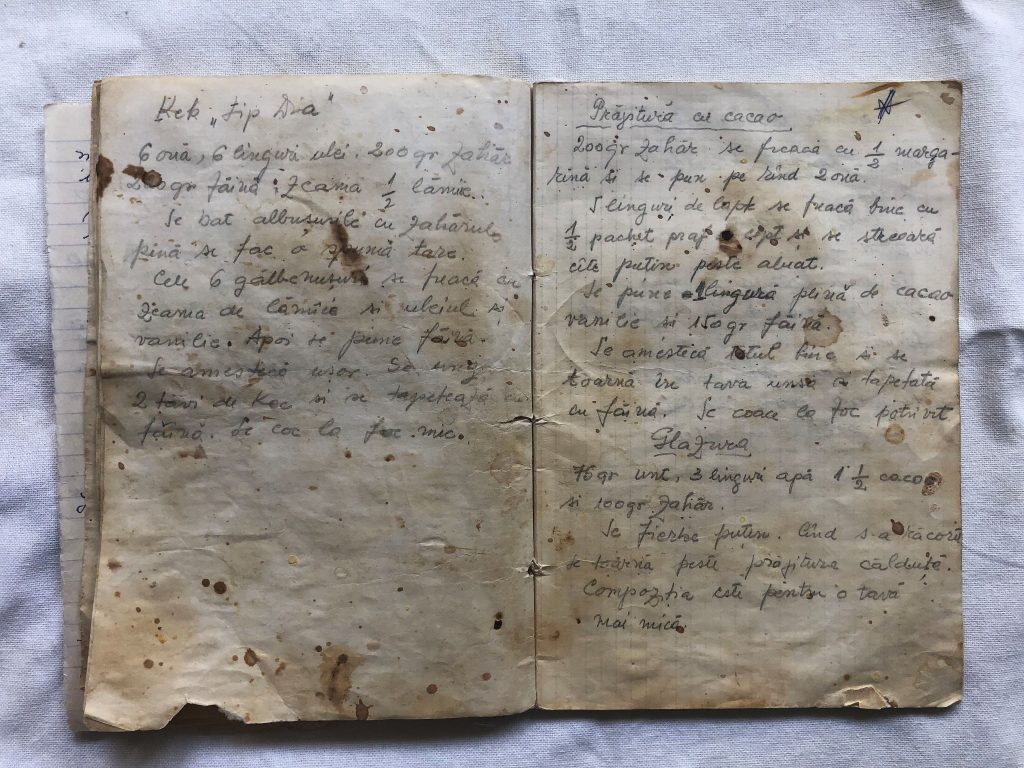 Kek „tip Dia"
6 ouă, 6 linguri ulei. 200 gr zahăr
200 gr făină, zeama 1/2 lămîie.
Se bat albusurile cu zahărul
pină se fac o spumă tare.
Cele 6 gălbenusuri se freacă cu
zeama de lămîie si uleiul si
vanilie. Apoi se pune făină.
Se amestică usor. Se ung
2 tăvi de kec si se tapetează cu
făină. Se coc la foc mic.
Prăjitură cu cacao
200 gr zahăr se freacă cu 1/3 marga-
rină si se pun pe rind 2 ouă.
5 linguri de lapte se freacă bine cu
1/2 pachet praf copt si se strecoară
cîte putin peste aluat.
Se pune 1 lingură plină de cacao
vanilie si 150 gr făină.
Se amestică totul bine si se
toarnă în tava unsă si tapetată
cu făină. Se coace la foc potrivit
Glazura
75 gr unt, 3 linguri apă 1 1/2 cacao
si 100 gr zahăr.
Se fierbe puțin. Cînd s-a răcorit
se toarnă peste prăjitura călduță.
Compoziția este pentru o tavă
mai mică.